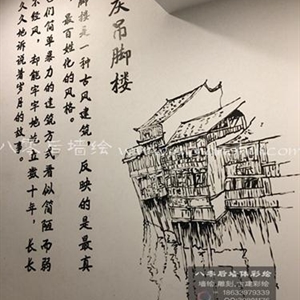 灰吊脚楼
脚楼是一种古风建筑，反映的是最真
、最百姓化的风格。
们简单暴力的建筑方式看似简陋而弱
不经风，却能牢牢地屹立数十年，长长
久久地诉说着岁月的故事。
八零后墙绘
八零后墙体彩绘
墙绘.雕刻.古建彩绘
18633979339